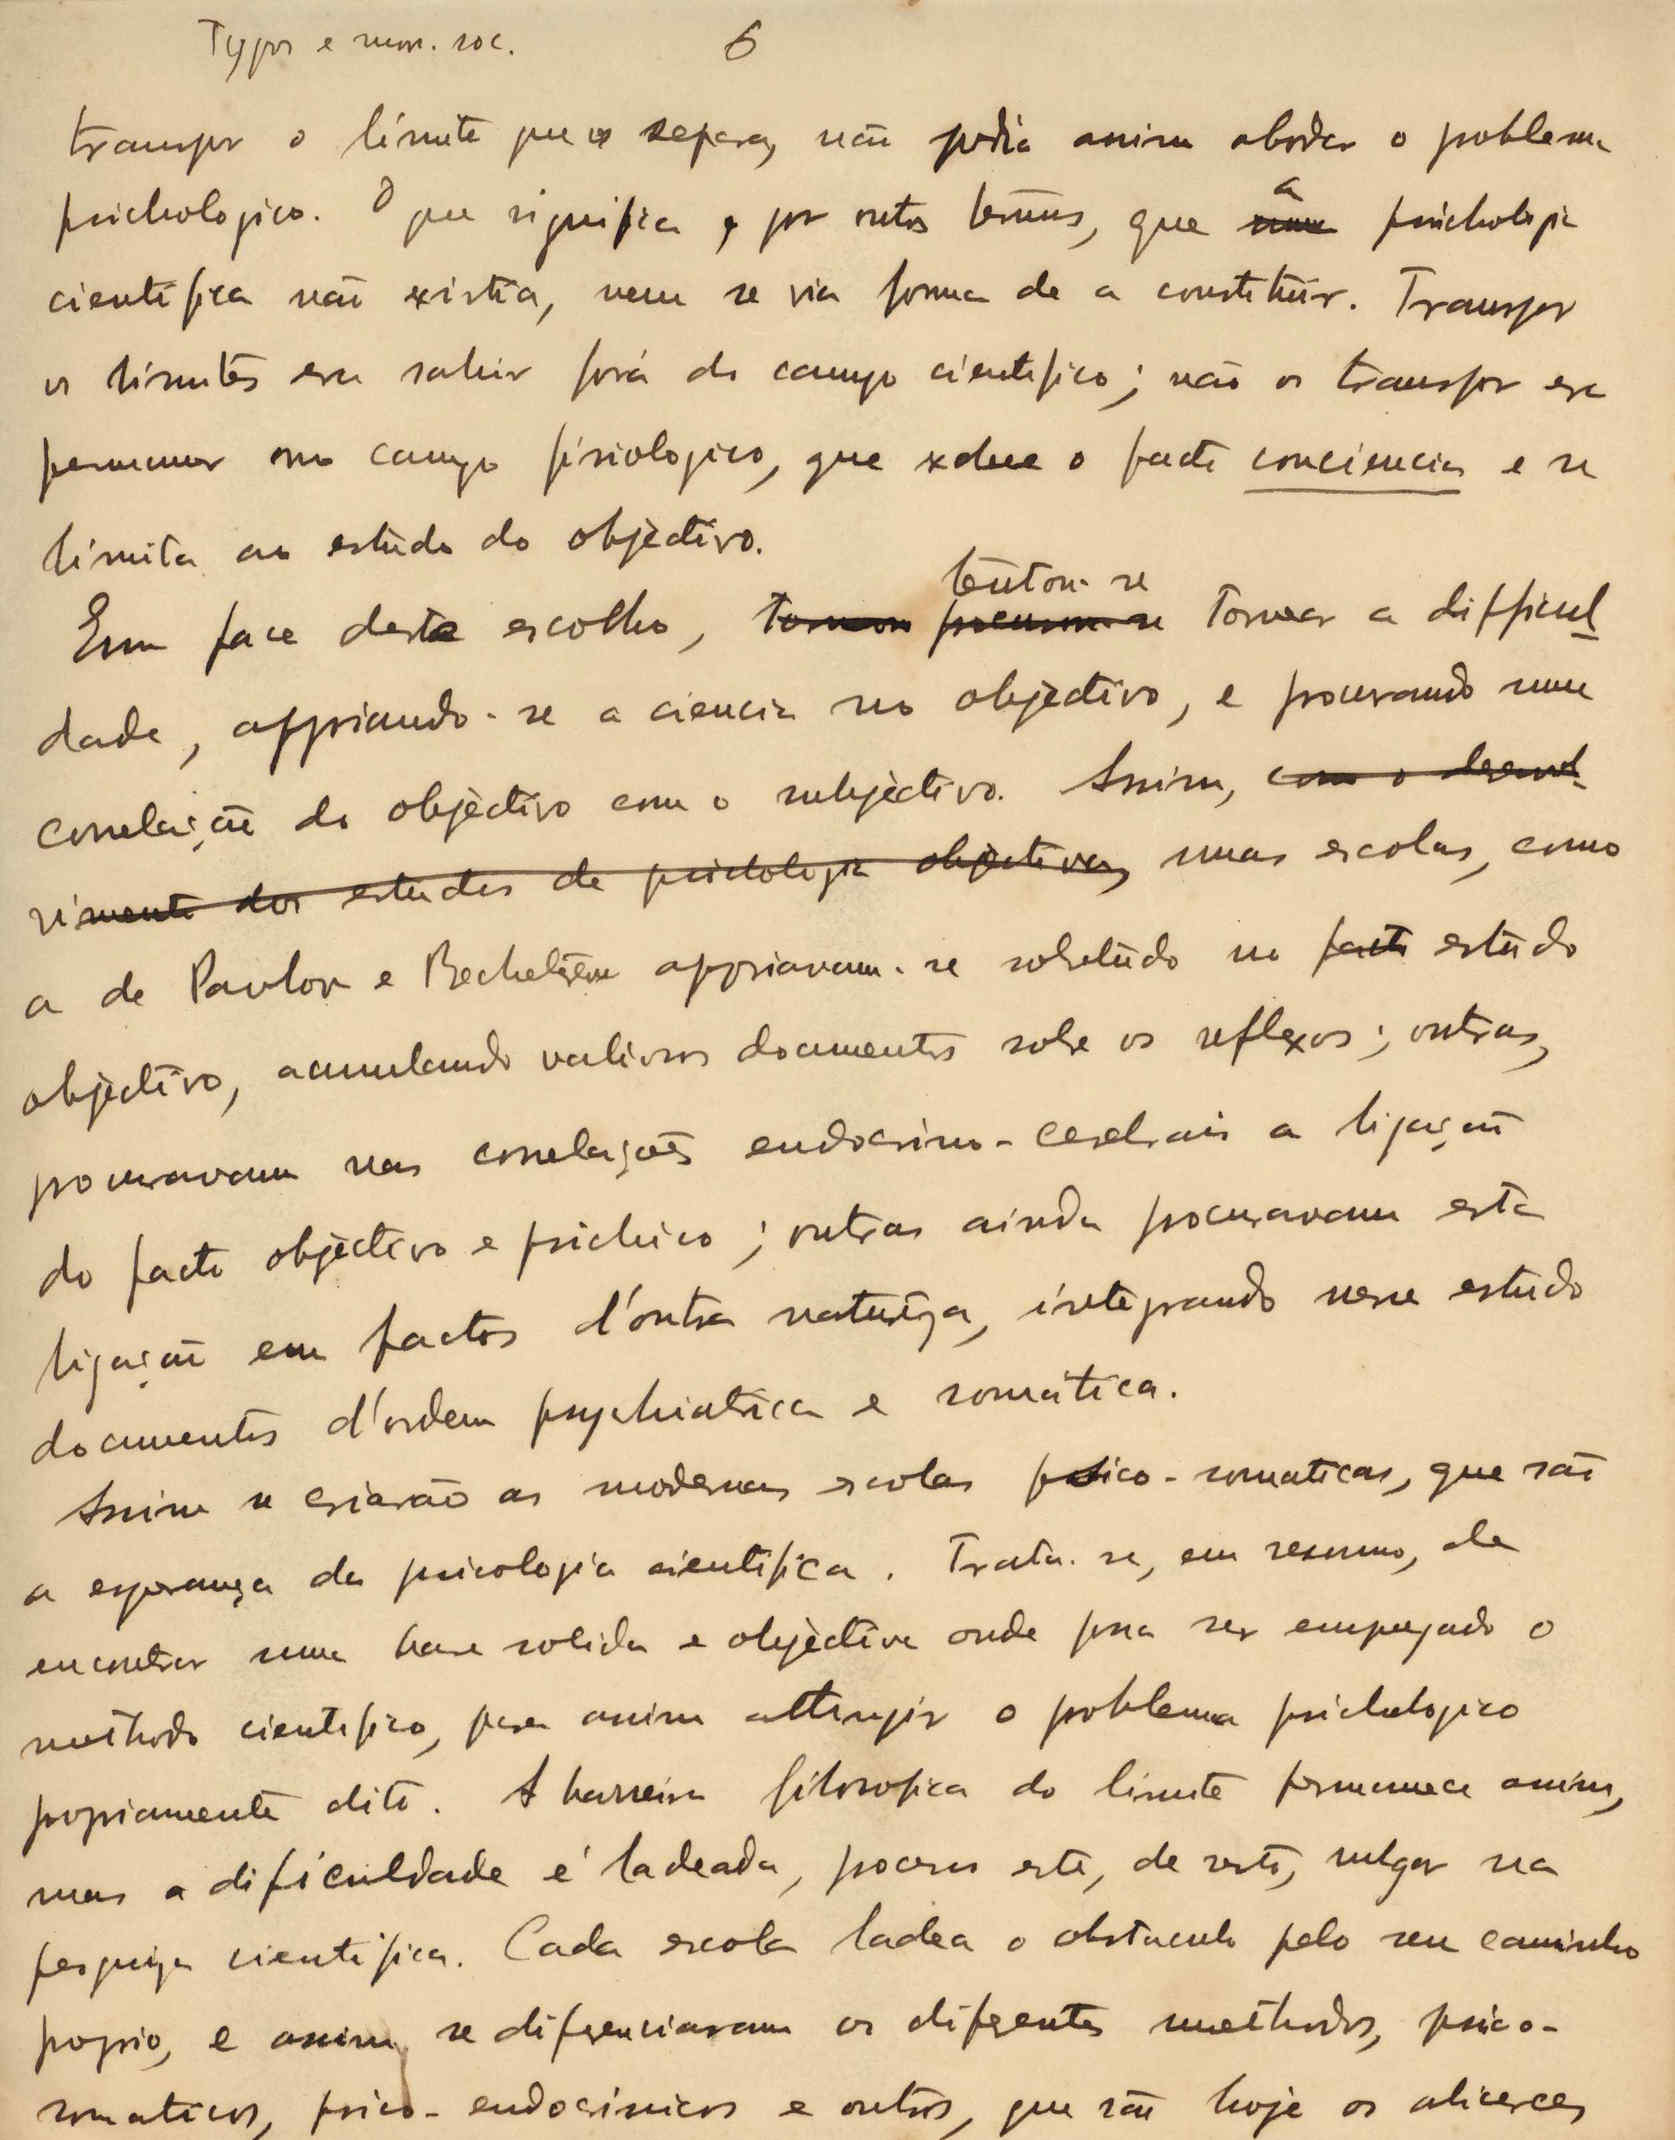 Typos e mov. soc. 6
transpor o limite que os separa, não podia assim abordar o problema
psichologico. O que significa, por outros termos, que a psichologia
cientifica não existia, nem se via forma de a constituir. Transpor
os limites era sahir fóra do campo cientifico; não os transpor era
permanecer no campo fisiologico, que exclue o facto conciencia e se
limita ao estudo do objectivo.
Em face deste escolho, tentou-se tornear a difficul
dade, appoiando-se a ciencia no objectivo, e procurando uma
correlação do objectivo com o subjectivo. Assim, com o desenvol-
vimento dos estudos de psicologia objectiva, umas escolas, como
a de Pavlov e Bechterew appoiavam-se sobretudo no facto estudo
objectivo, acumulando valiosos documentos sobre os reflexos; outras,
procuravam nas correlações endocrino-cerebrais a ligação
do facto objectivo e psichico; outras ainda procuravam esta
ligação em factos d'outra natureza, integrando nesse estudo
documentos d'ordem psychiatrica e somática.
Assim se criarão as modernas escolas psico-somaticas, que são
a esperança da psicologia cientifica. Trata-se, em resumo, de
encontrar uma base solida e objectiva onde possa ser empregado o
methodo cientifico, para assim attingir o problema psichologico
propriamente dito. A barreira filosofica do limite permanece assim,
mas a dificuldade é ladeada, processo este, de resto, vulgar na
pesquiza cientifica. Cada escola ladea o obstaculo pelo seu caminho
proprio, e assim se diferenciaram os diferentes methodos, psico-
somaticos, psico-endocrinicos e outros, que são hoje os alicerces